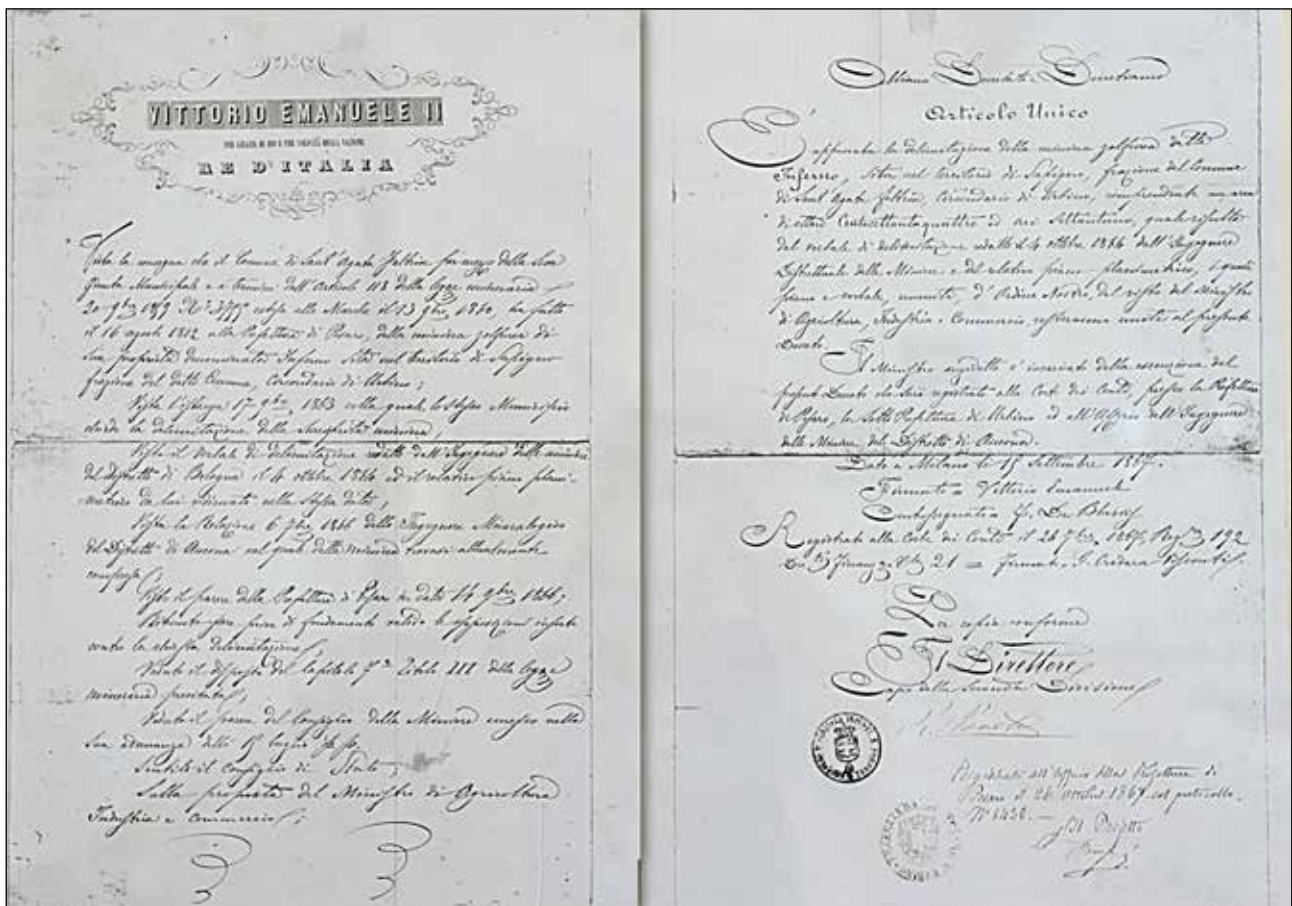 VITTORIO EMANUELE II
PER GRAZIA DI DIO E PER VOLONTÀ DELLA NAZIONE
RE D'ITALIA
Vista la consegna che il Comune di Sant'Agata Feltria per mezzo della sua
Giunta Municipale e a termini dell'Articolo 113 della legge mineraria
20 9bre 1859 N° 3755 estesa alle Marche il 13 9bre 1860, ha fatto
il 16 agosto alla Prefettura di Pesaro, della miniera zolfurea di
sua proprietà denominata Inferno sita nel territorio di Sapigno
frazione del detto Comune, Circondario di Urbino;
Vista l'istanza 17 9bre 1863 colla quale lo stesso Municipio
chiede la delimitazione della miniera;
Visto il verbale di delimitazione redatto dall'Ingegnere delle miniere
del distretto di Bologna il 4 ottobre 1864 ed il relativo piano plani-
metrico da lui nella stessa data;
Vista la Relazione 6 7bre 1866 dello Ingegnere Mineralogico
del Distretto di Ancona nel quale detta miniera trovasi attualmente
compresa;
Visto il parere della Prefettura di Pesaro in data 16 9bre 1866;
Ritenuto essere prive di fondamento valido le opposizioni
contro la chiesta delimitazione;
Veduto il disposto del Capitolo Titolo III della legge
mineraria precitata;
Veduto il parere del Consiglio delle Miniere emesso nella
sua adunanza delli 15 luglio
Sentito il Consiglio di Stato;
Sulla proposta del Ministro di Agricoltura
Industria e Commercio;
Abbiamo Decretato e Decretiamo
Articolo Unico
È approvata la delimitazione della miniera zolfurea detta
Inferno, sita nel territorio di Sapigno, frazione del Comune
di Sant'Agata Feltria, Circondario di Urbino, comprendente un area
di ettari Centosettantaquattro ed ari settantuno, quale risulta
dal verbale di delimitazione redatto il 4 ottobre 1864 dall'Ingegnere
Distrettuale delle Miniere e dal relativo piano planimetrico, i quali
piano e verbale, muniti, d'Ordine Nostro, del visto del Ministro
di Agricoltura, Industria e Commercio resteranno uniti al presente
Decreto.
Il Ministro suddetto è incaricato della esecuzione del
presente Decreto che sarà registrato alla Corte dei Conti, presso la Prefettura
di Pesaro, la Sotto Prefettura di Urbino ed all'Uffizio dell'Ingegnere
delle Miniere del Distretto di Ancona.
Dato a Milano li 15 Settembre 1867.
Firmato = Vittorio Emanuele
Contrassegnato = F. De Blasiis
Registrato alla Corte dei Conti il 26 7bre 1867, Reg° 192
21 = Firmato = G.
Per copia conforme
Il Direttore
Capo della Seconda Divisione
Registrato all'Uffizio della Prefettura di
Pesaro il 26 ottobre 1867 col protocollo
Il Prefetto